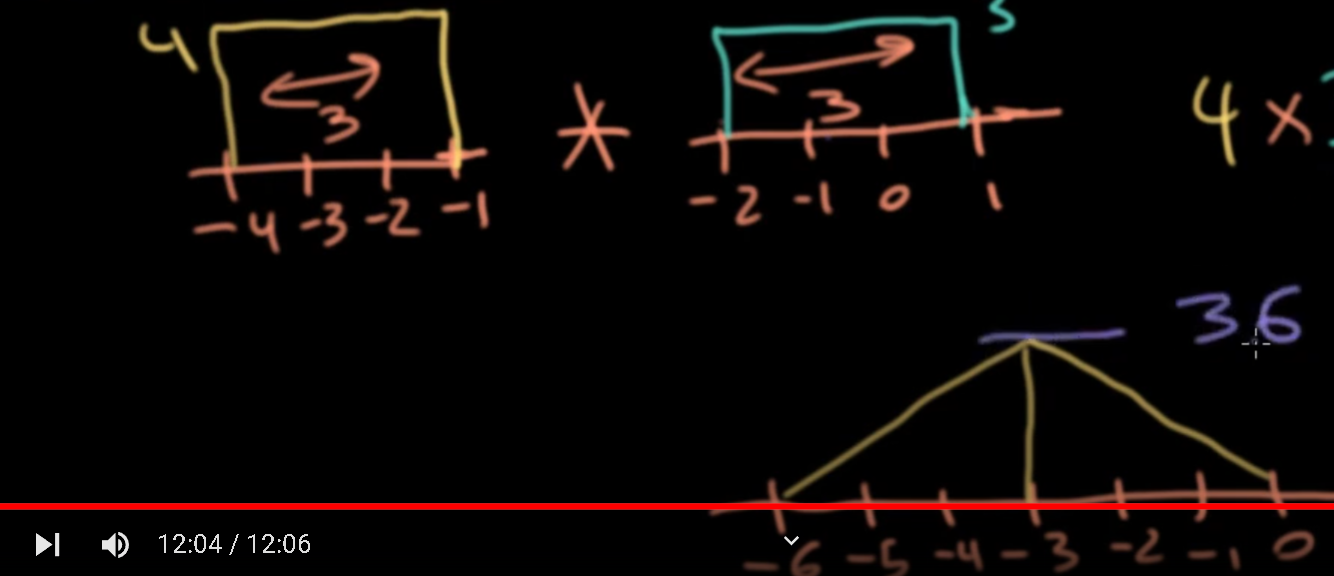 4
3
-4 -3 -2 -1
*
3
-2 -1 0 1
4 ×
36
-6 -5 -4 -3 -2 -1 0
12:04 / 12:06